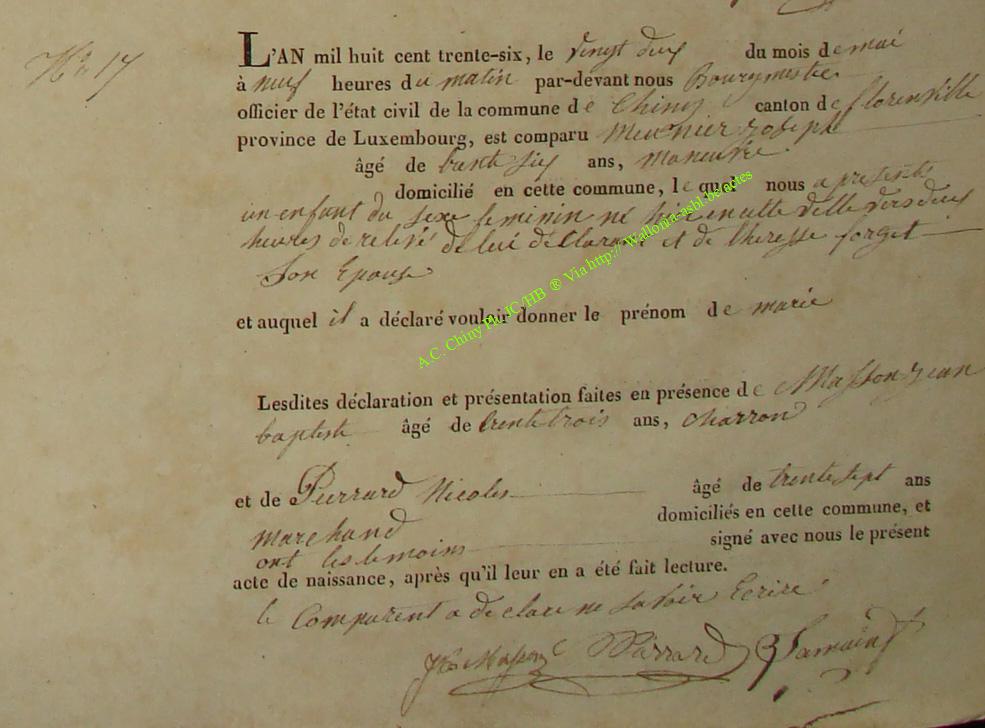 N° 17
L'AN mil huit cent trente-six, le vingt deux du mois de mai
à neuf heures du matin par-devant nous Bourgmestre
officier de l'état civil de la commune de Chiny canton de florenville
province de Luxembourg, est comparu Meunier Joseph
âgé de trente six ans, maneuvre
domicilié en cette commune, le quel nous a presenté
un enfant du sexe feminin né hier en cette ville vers deux
heures de relevés de lui déclarant et de theresse forget
Son Epouse
et auquel il a déclaré vouloir donner le prénom de marie
Lesdites déclaration et présentation faites en présence de Masson Jean
baptiste âgé de trente trois ans, charron
et de Pierrard Nicolas âgé de trente sept ans
marchand domiciliés en cette commune, et
ont les temoins signé avec nous le présent
acte de naissance, après qu'il leur en a été fait lecture.
le Comparent a declare ne savoir Ecrire
JB Masson Pierrard
A.C. Chiny Ph. JC/HB ® Via http:// Wallonia-asbl.be/actes